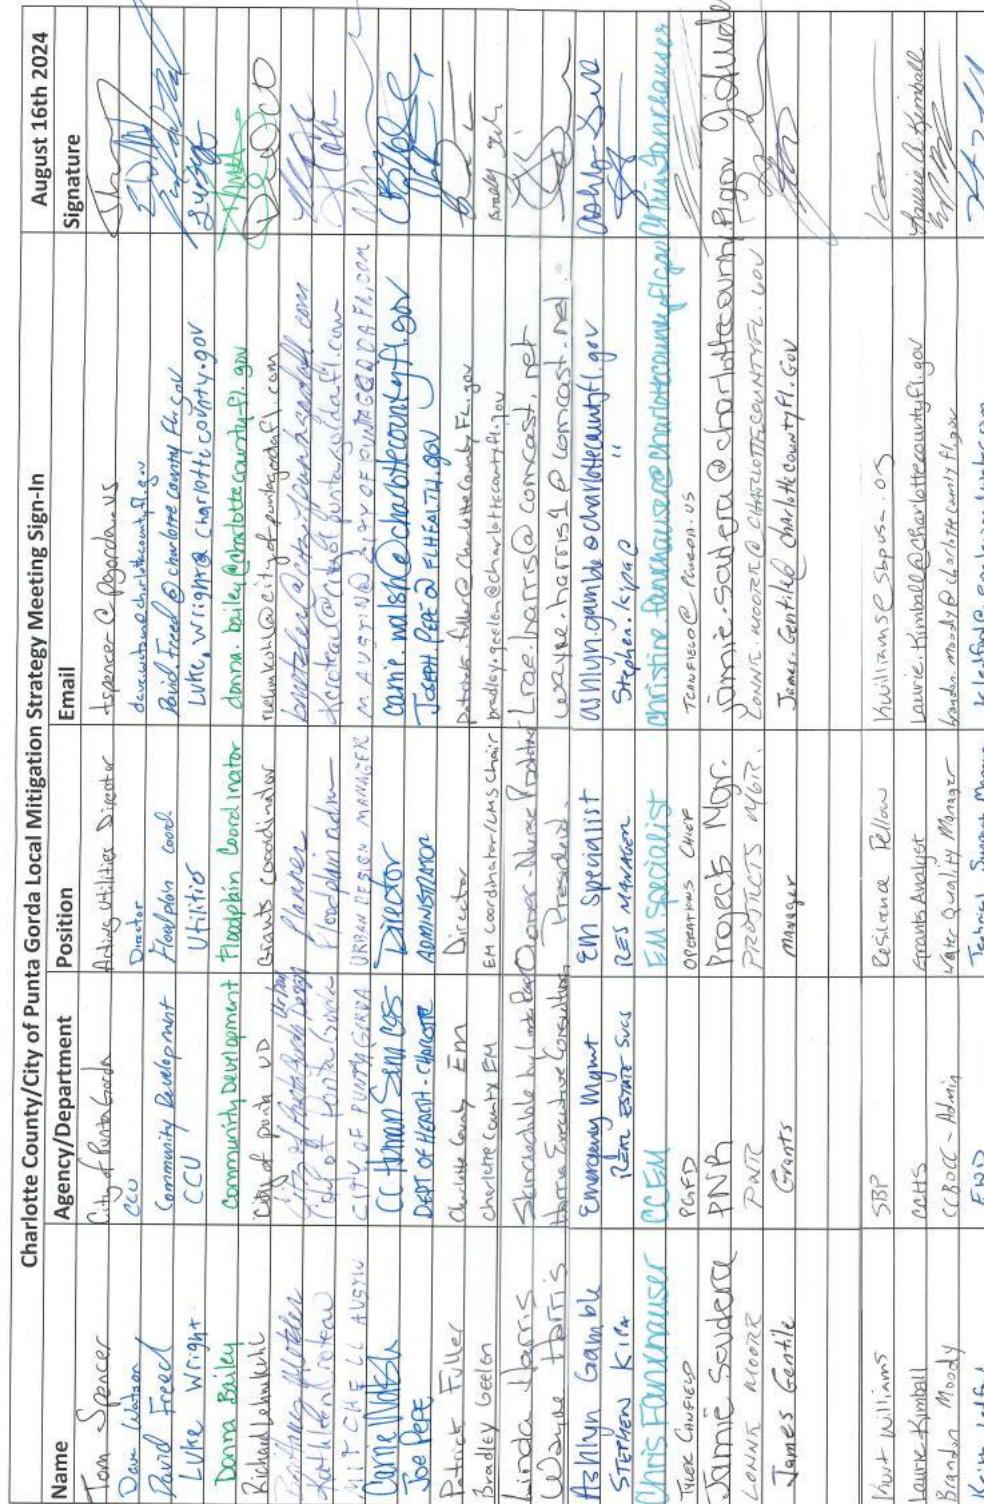 Charlotte County/City of Punta Gorda Local Mitigation Strategy Meeting Sign-In August 16th 2024
Name Agency/Department Position Email Signature
Tom Spencer City of Punta Gorda Acting Utilities Director
Dave Watson CCU Director
David Freed Community Development Floodplain Coord.
Luke Wright CCU Utilities Luke.Wright@charlottecounty.gov
Donna Bailey Community Development Floodplain Coordinator donna.bailey@charlottecounty-fl.gov
Richard City of punta UD Grants Coordinator
Planner
City of Punta Gorda Floodplain adm
MITCHELL AUSTIN CITY OF PUNTA GORDA URBAN DESIGN MANAGER MAUSTIN@CITYOFPUNTAGORDAFL.COM
Carrie Walsh CC Human Services Director carrie.walsh@charlottecountyfl.gov
Joe Pepe DEPT OF HEALTH-CHARLOTTE ADMINISTRATOR JOSEPH.PEPE@FLHEALTH.GOV
Patrick Fuller Charlotte County EM Director Patrick.fuller@CharlotteCountyFL.gov
Bradley Geelen Charlotte County EM EM Coordinator/LMS Chair bradley.geelen@charlottecountyfl.gov
Linda Harris Owner-Nurse
Wayne Harris Harris Executive Consulting President wayne.harris1@comcast.net
Ashlyn Gamble Emergency Mgmt EM Specialist ashlyn.gamble@charlottecountyfl.gov
STEPHEN KIPA REAL ESTATE SVCS RES MANAGER Stephen.Kipa@ "
Chris Fankhauser CCEM EM Specialist christine.fankhauser@charlottecountyfl.gov Chris Fankhauser
TYLER CANFIELD PGFD OPERATIONS CHIEF
Jamie Scudera PNR Project Mgr. jamie.scudera@charlottecountyfl.gov
LONNIE MOORE PNR PROJECTS MGR. LONNIE.MOORE@CHARLOTTECOUNTYFL.GOV
James Gentile Grants Manager James.Gentile@charlottecountyfl.gov
Kurt Williams SBP Resilience Fellow kwilliams@sbpusa.org
Laurie Kimball Grants Analyst Laurie.Kimball@charlottecountyfl.gov Laurie A Kimball
Brandon Moody CCBOCC - Admin Water Quality Manager brandon.moody@charlottecountyfl.gov
EWD Technical Support